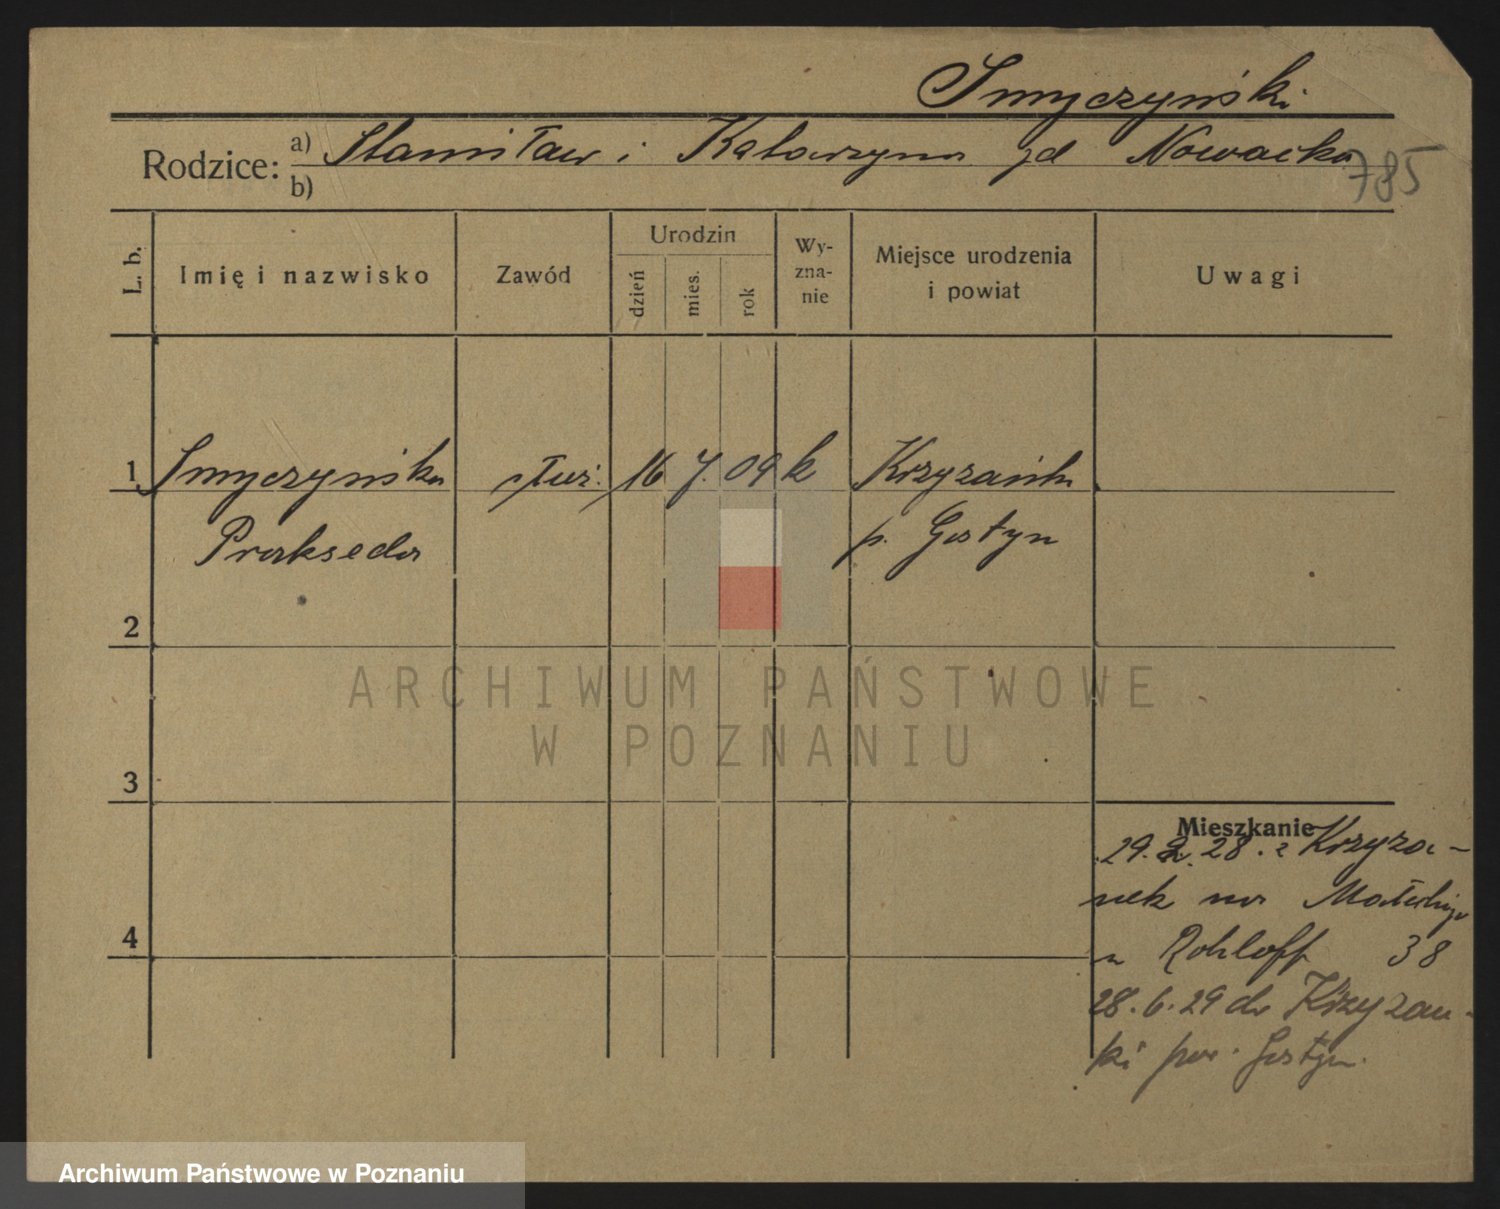 Smyczyński
Rodzice: a) Stanisław i Katarzyna zd Nowacka
b)
785
L. b.
Imię i nazwisko
Zawód
Urodzin
dzień
mies.
rok
Wy-
zna-
nie
Miejsce urodzenia
i powiat
Uwagi
1 Smyczyńska służ. 16 7. 09 k Krzyżanki
Prakseda p. Gostyn
2
ARCHIWUM PAŃSTWOWE
W POZNANIU
3
Mieszkanie
29. 2. 28. z Krzyża-
nek na
u Rohloff 38
28. 6. 29 do Krzyżan-
ki pow. Gostyn.
4
Archiwum Państwowe w Poznaniu